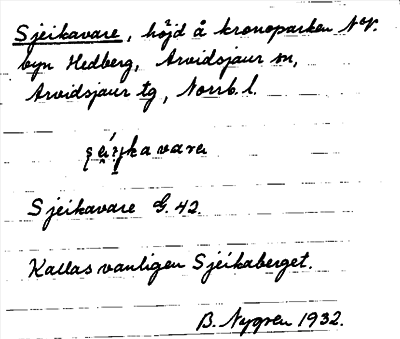 Sjeikavare, höjd å kronoparken NV.
byn Hedberg, Arvidsjaur sn,
Arvidsjaur tg, Norrb. l.
Sjeikavare G. 42.
Kallas vanligen Sjeikaberget.
B. Nygren 1932.